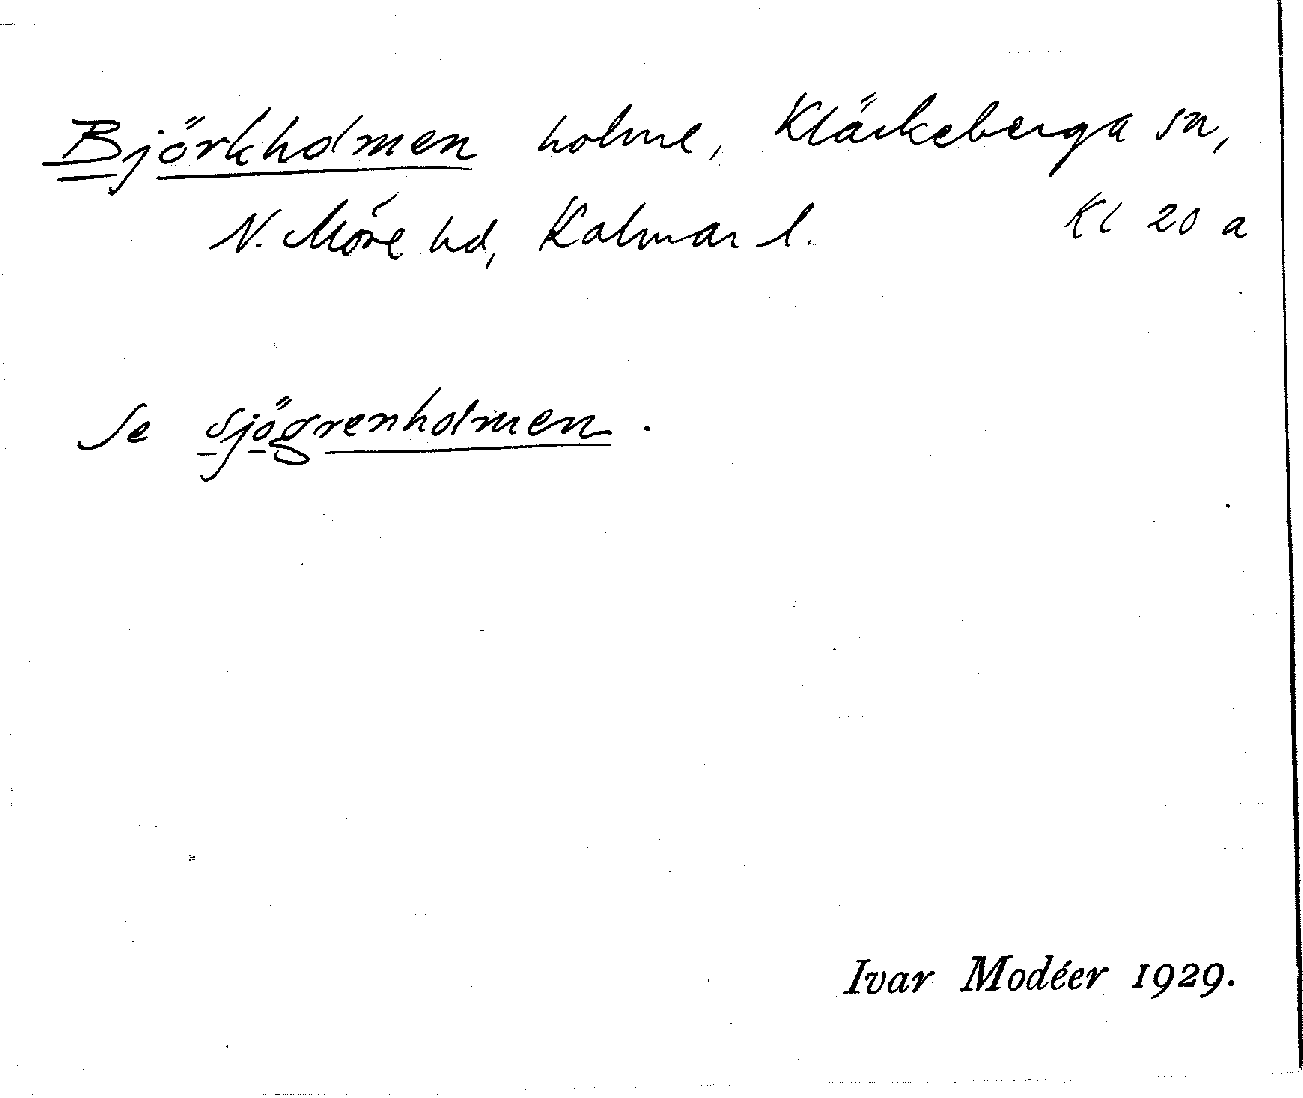 Björkholmen holme, Kläckeberga sn,
N. Möre hd, Kalmar l. Kl 20 a
Se Sjögrenholmen.
Ivar Modéer 1929.